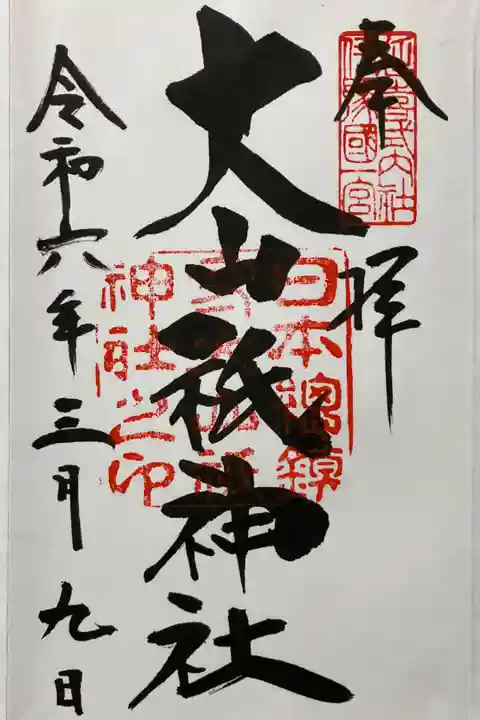 奉拝
延喜式内社
伊豫國一宮
大山祇神社
日本總鎮守
大山祇
神社之印
令和六年三月九日